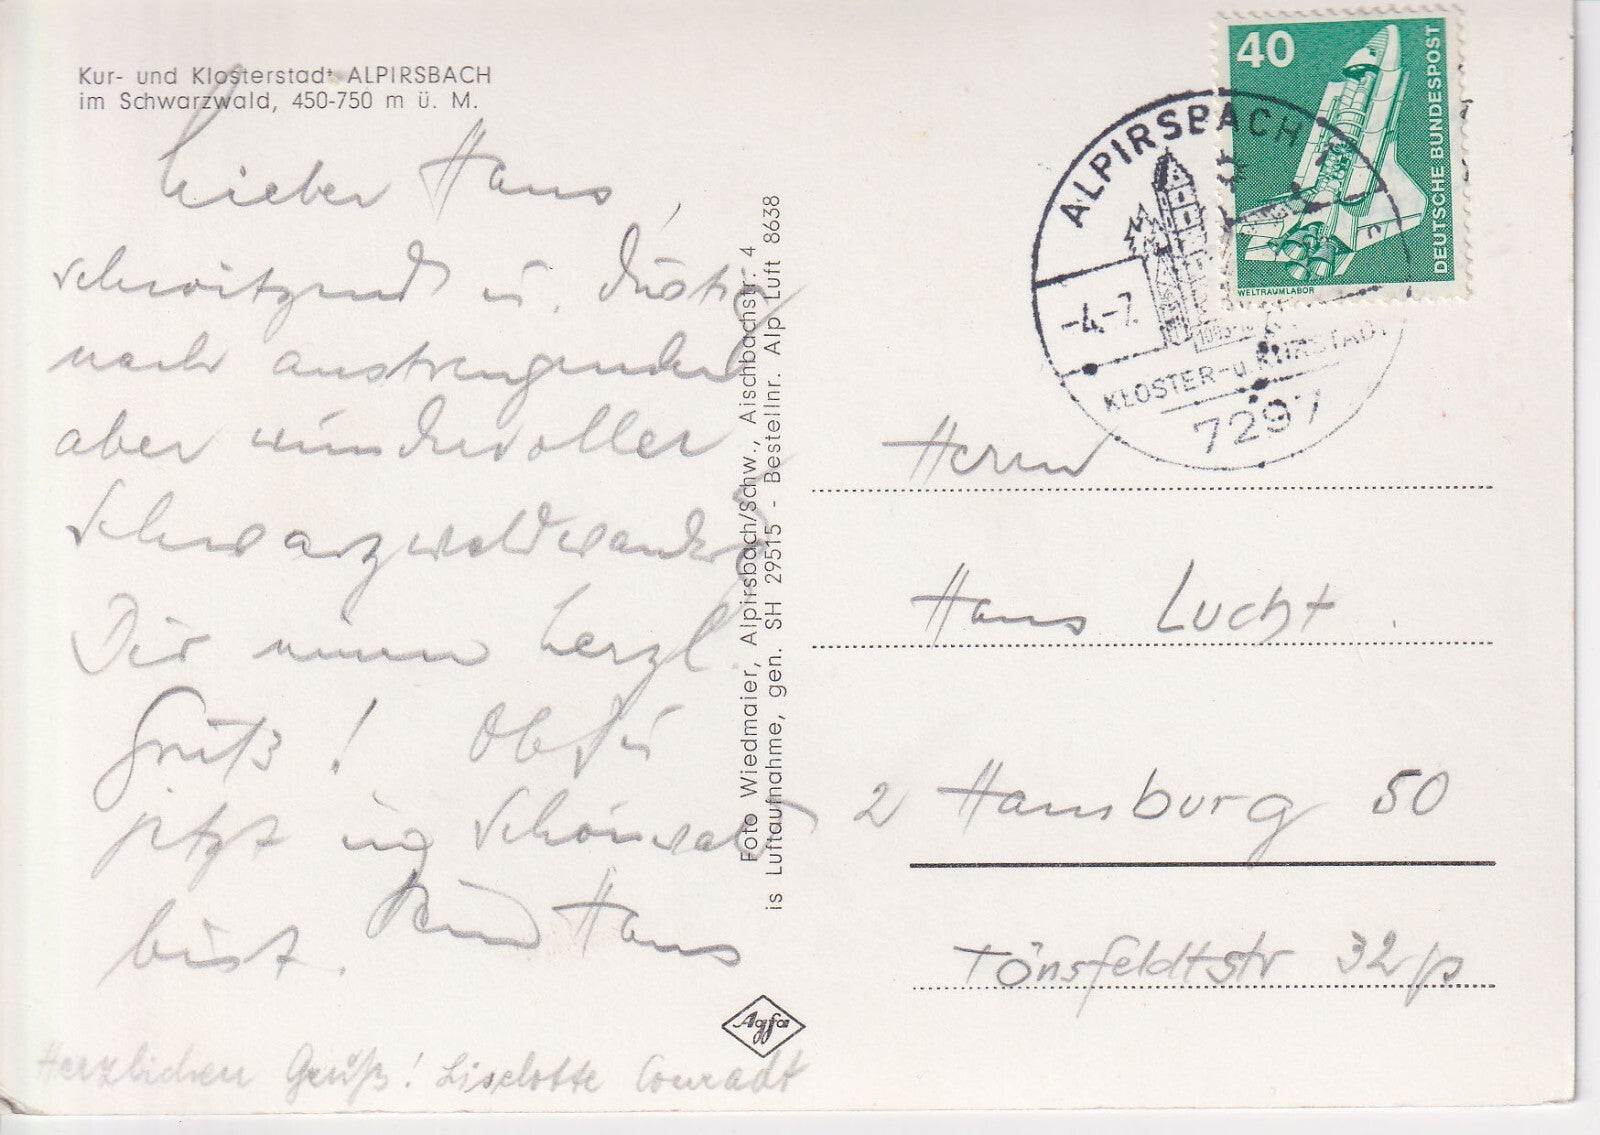 Kur- und Klosterstadt ALPIRSBACH
im Schwarzwald, 450-750 m ü. M.
Lieber Hans,
schwitzend u. durstig
nach anstrengender
aber wundervoller
Schwarzwaldwanderg
Dir einen herzl.
Gruß! Ob Du
jetzt in Schönwald
bist. Dein Hans
Herzlichen Gruß! Liselotte Conradt
Foto Wiedmaier, Alpirsbach/Schw., Aischbachstr. 4
is Luftaufnahme, gen. SH 29515 - Bestellnr. Alp Luft 8638
Agfa
40
DEUTSCHE BUNDESPOST
WELTRAUMLABOR
ALPIRSBACH 1
-4.-7.
KLOSTER- u. KURSTADT
7297
Herrn
Hans Lucht.
2 Hamburg 50
Tönsfeldtstr 32/p